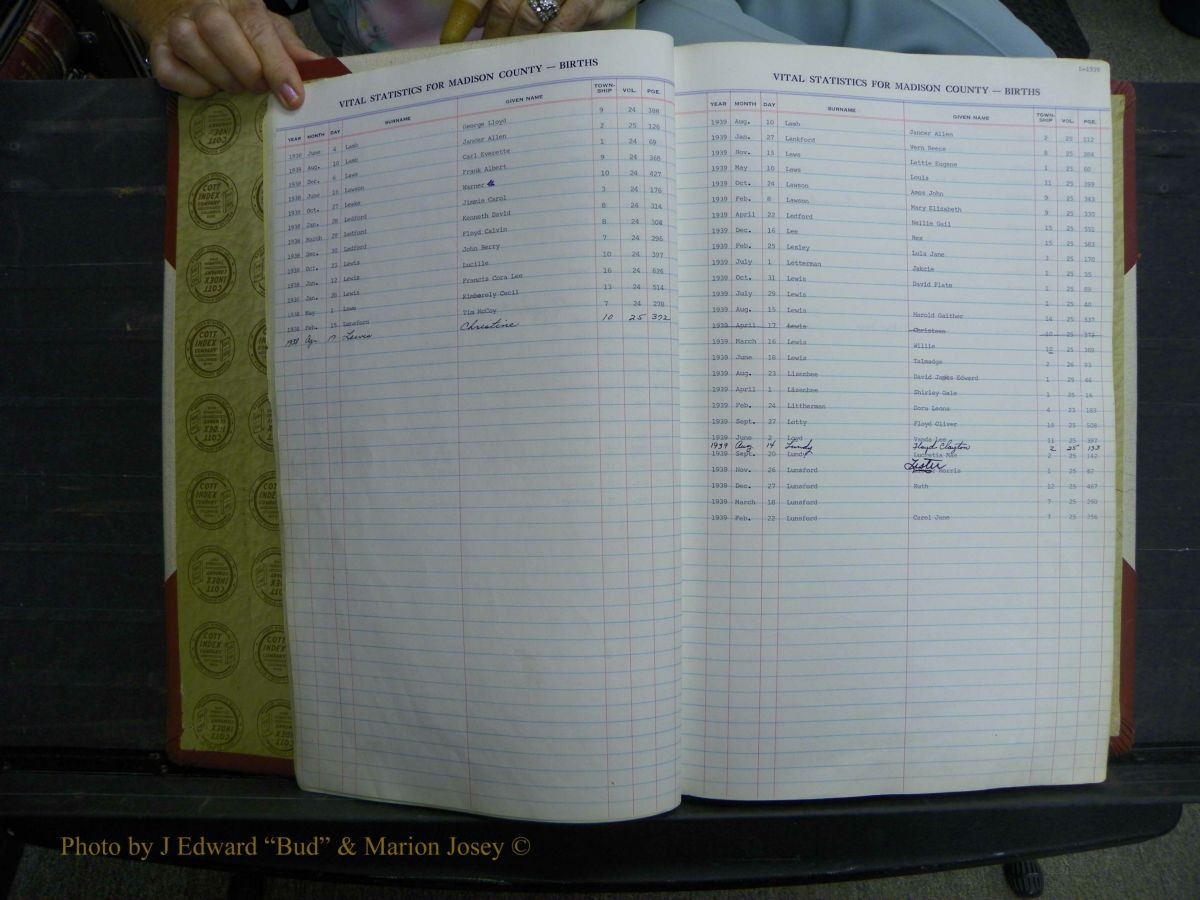 VITAL STATISTICS FOR MADISON COUNTY — BIRTHS
YEAR MONTH DAY SURNAME GIVEN NAME TOWN-SHIP VOL. PGE.
1938 June 4 Lamb George Lloyd 9 24 398
1938 Aug. 10 Lamb Jancer Allen 2 25 126
1938 Dec. 6 Laws Carl Everette 1 24 69
1938 June Lawson Frank Albert 9 24 368
1938 Oct. 27 Leake Warner 10 24 427
1938 Jan. 28 Ledford Jimmie Carol 3 24 176
1938 March Ledford Kenneth David 8 24 314
1938 Dec. 30 Ledford Floyd Calvin 8 24 304
1938 Oct. 23 Lewis John Berry 7 24 296
1938 Jan. 12 Lewis Lucille 10 24 397
1938 Jan. 20 Lewis Francis Cora Lee 16 24 626
1938 May 1 Kimberely Cecil 13 24 514
1938 Feb. 15 Lunsford Tim McCoy 7 24 278
1938 17 Lewis Christine 10 25 372
VITAL STATISTICS FOR MADISON COUNTY — BIRTHS
L-1939
YEAR MONTH DAY SURNAME GIVEN NAME TOWN-SHIP VOL. PGE.
1939 Aug. 10 Lamb Jancer Allen 2 25 112
1939 Jan. 27 Lankford Vern Reece 8 25
1939 Nov. 15 Laws Lattie Eugene 1 25 60
1939 May 10 Laws Louis 11 25 399
1939 Oct. 24 Lawson Amos John 9 25 343
1939 Feb. 8 Lawson Mary Elizabeth 9 25 330
1939 April 22 Ledford Nellie Gail 15 25 551
1939 Dec. 16 Lee Rex 15 25 583
1939 Feb. 25 Lesley Lula Jane 3 25 170
1939 July 1 Letterman Jakcie 1 25 35
1939 Oct. 31 Lewis David Plato 25 89
1939 July 29 Lewis 1 25 40
1939 Aug. 15 Lewis Harold Gaither 14 25 537
1939 April 17 Lewis Christeen 10 25 372
1939 March 16 Lewis Willie 25 369
1939 June 18 Lewis Talmadge 2 26 93
1939 Aug. 23 Lisenbee David James Edward 1 25 44
1939 April 1 Lisenbee Shirley Gale 1 25 16
1939 Feb. 24 Littherman Dora Leona 4 25 183
1939 Sept. 27 Lotty Floyd Oliver 25 508
1939 June 2 Lord Vanda Lee 11 25 397
1939 Aug. 14 Lundy Floyd Clayton 2 25 133
1939 Sept. 20 Lundy Lucretia Mae 2 25 142
1939 Nov. 26 Lunsford Lester Norris 1 25 82
1939 Dec. 27 Lunsford Ruth 12 25 467
1939 March 18 Lunsford 7 25 250
1939 Feb. 22 Lunsford Carol Jane 7 25 256
COTT INDEX COMPANY
Photo by J Edward “Bud” & Marion Josey ©